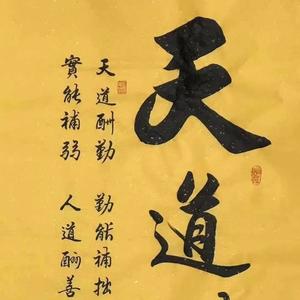 天道
天道酬勤 勤能補拙
實能補弱 人道酬善